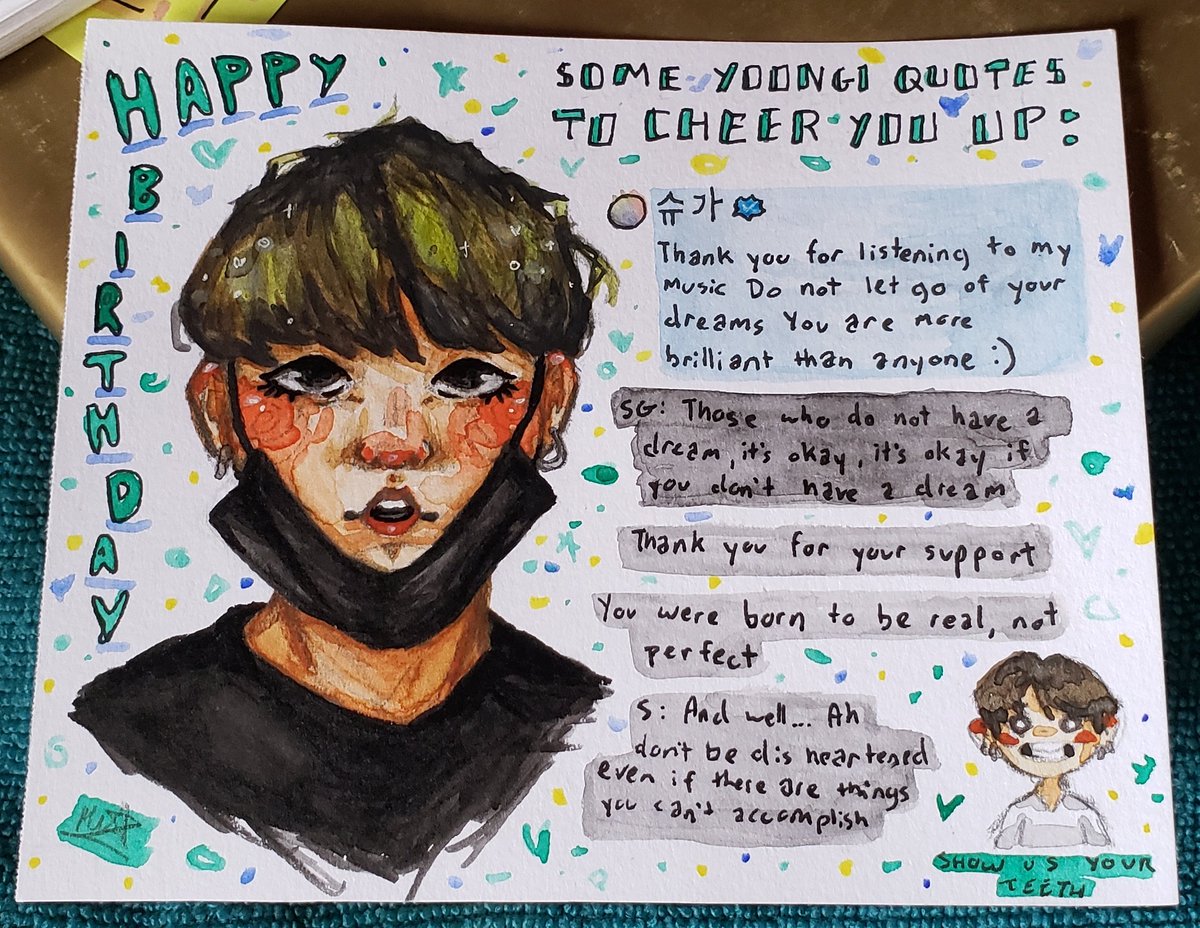 HAPPY
BIRTHDAY
SOME YOONGI QUOTES
TO CHEER YOU UP:
슈가
Thank you for listening to my
music Do not let go of your
dreams You are more
brilliant than anyone :)
SG: Those who do not have a
dream, it's okay, it's okay if
you don't have a dream
Thank you for your support
You were born to be real, not
perfect
S: And well... Ah
don't be disheartened
even if there are things
you can't accomplish
SHOW US YOUR
TEETH